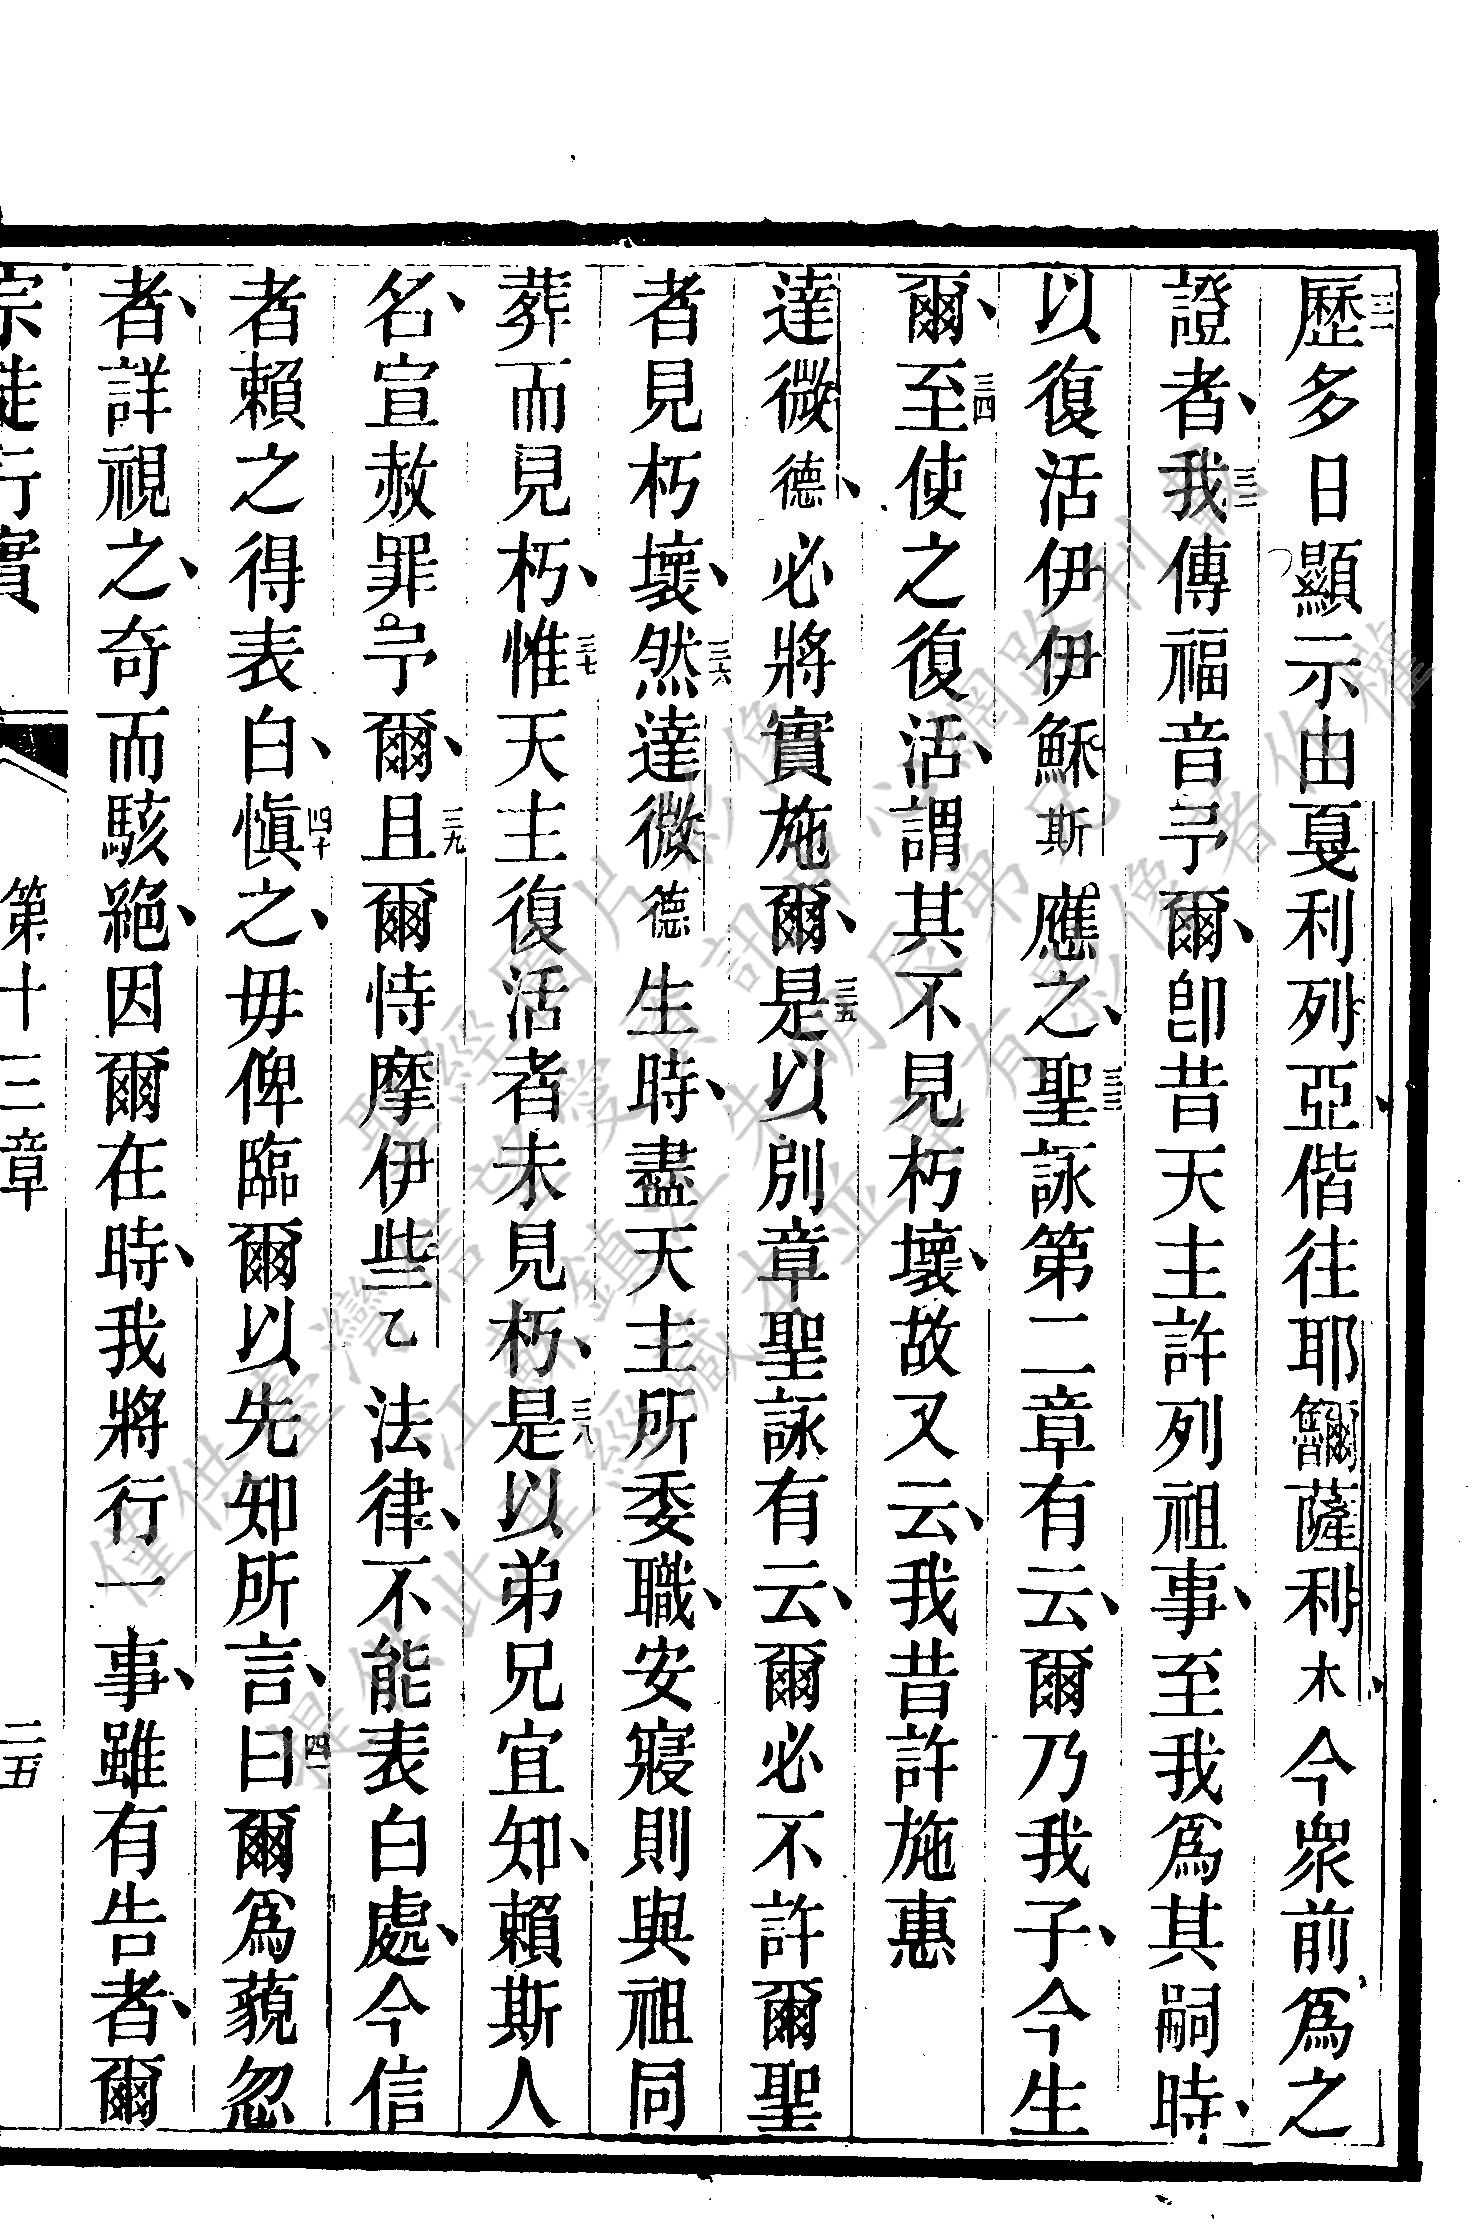 三一歷多日顯示由戛利列亞偕往耶𩆜薩利木今衆前爲之
證者、三二我傳福音予爾、卽昔天主許列祖事、至我爲其嗣時、
以復活伊伊穌斯應之、三三聖詠第二章有云、爾乃我子、今生
爾、三四至使之復活、謂其不見朽壞、故又云、我昔許施惠
達微德、必將實施爾、三五是以別章聖詠有云、爾必不許爾聖
者見朽壞、三六然達微德生時、盡天主所委職、安寢則與祖同
葬而見朽、三七惟天主復活者未見朽、三八是以弟兄宜知、賴斯人
名、宣赦罪予爾、三九且爾恃摩伊些乙法律、不能表白處、今信
者賴之得表白、四十愼之、毋俾臨爾以先知所言、四一曰爾爲藐忽
者、詳視之、奇而駭絕、因爾在時、我將行一事、雖有告者、爾
宗徒行實 第十三章 二五
僅供臺灣信望愛資訊網路刊載